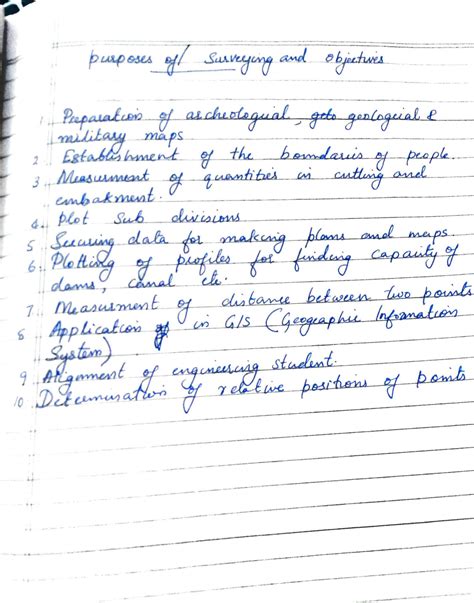 purposes of Surveying and objectives
1. Preparation of archeological, geto geological &
military maps
2 Establishment of the boundaries of people.
3. Measurment of quantities in cutting and
embakment.
4. plot Sub divisions
5 Securing data for making plans and maps.
6. Plotting of profiles for finding capacity of
dams, canal etc.
7. Measurment of distance between two points
8 Application of in GIS (Geographic Information
System)
9 Alignment of engineering student.
10. Determination of relative positions of points